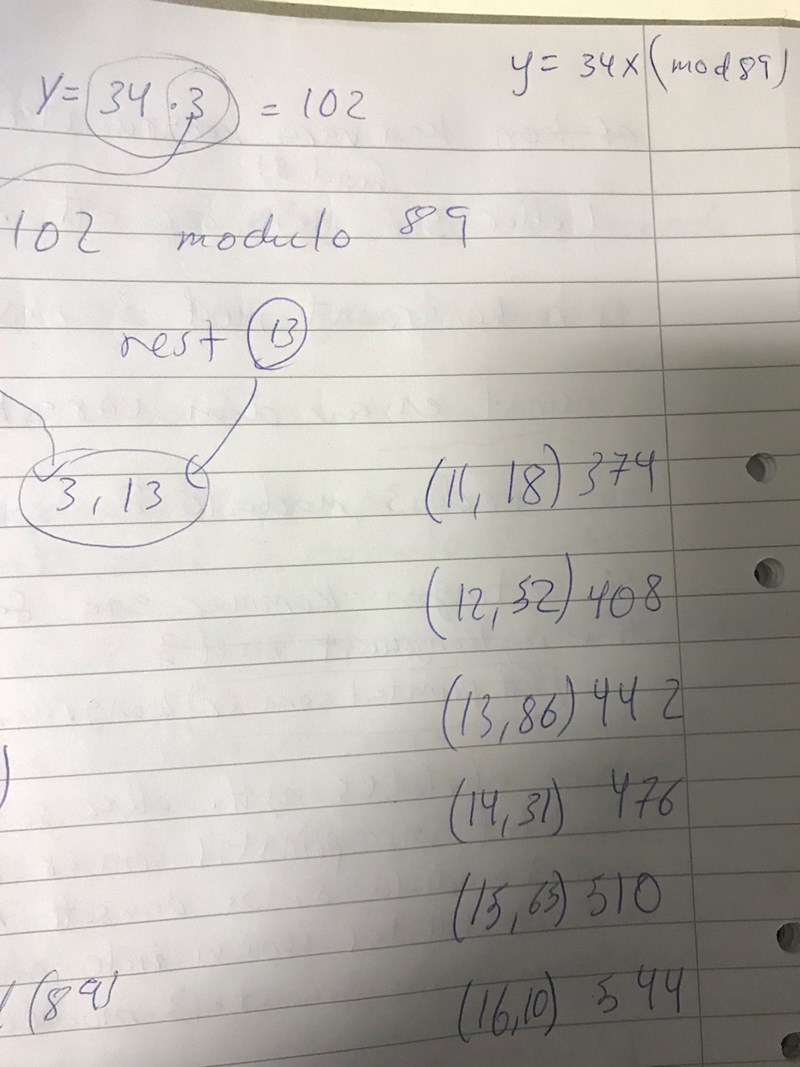 y = 34x (mod 89)
y = 34 · 3 = 102
102 modulo 89
rest 13
3, 13
(11, 18) 374
(12, 52) 408
(13, 86) 442
(14, 31) 476
(15, 65) 510
(16, 10) 544
(89)